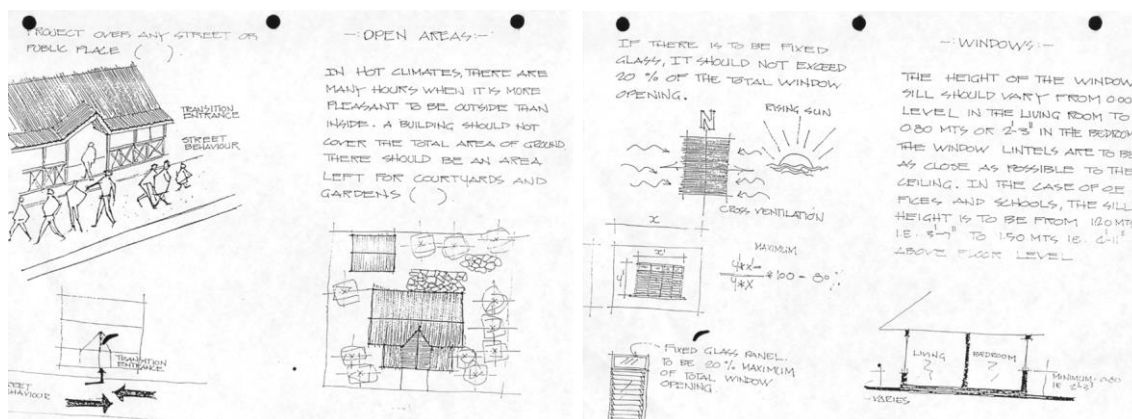 PROJECT OVER ANY STREET OR
PUBLIC PLACE ( ).
TRANSITION
ENTRANCE
STREET
BEHAVIOUR
TRANSITION
ENTRANCE
STREET
BEHAVIOUR
-:OPEN AREAS:-
IN HOT CLIMATES, THERE ARE
MANY HOURS WHEN IT IS MORE
PLEASANT TO BE OUTSIDE THAN
INSIDE. A BUILDING SHOULD NOT
COVER THE TOTAL AREA OF GROUND
THERE SHOULD BE AN AREA
LEFT FOR COURTYARDS AND
GARDENS ( )
IF THERE IS TO BE FIXED
GLASS, IT SHOULD NOT EXCEED
20 % OF THE TOTAL WINDOW
OPENING.
N
RISING SUN
CROSS VENTILATION
x
x'
MAXIMUM
FIXED GLASS PANEL.
TO BE 20% MAXIMUM
OF TOTAL WINDOW
OPENING.
-:WINDOWS:-
THE HEIGHT OF THE WINDOW
SILL SHOULD VARY FROM 0.00
LEVEL IN THE LIVING ROOM TO
0.80 MTS OR 2'-3" IN THE
THE WINDOW LINTELS ARE TO BE
AS CLOSE AS POSSIBLE TO THE
CEILING. IN THE CASE OF OF
FICES AND SCHOOLS, THE SILL
HEIGHT IS TO BE FROM 1.20 MTS
I.E. 3'-7" TO 1.50 MTS I.E.
ABOVE FLOOR LEVEL
LIVING
BEDROOM
MINIMUM
VARIES